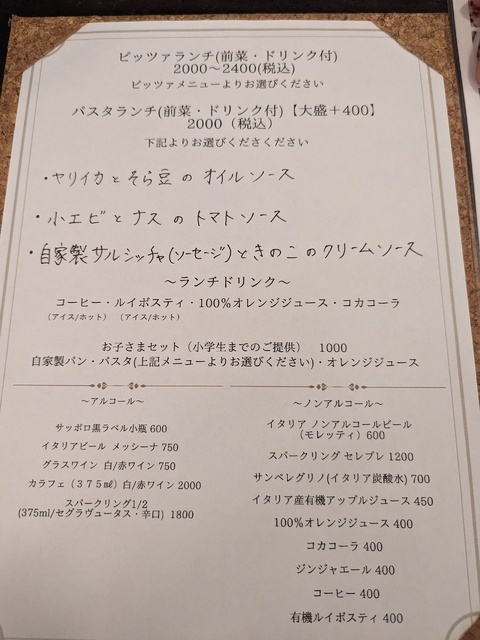 ピッツァランチ(前菜・ドリンク付)
2000～2400(税込)
ピッツァメニューよりお選びください
パスタランチ(前菜・ドリンク付)【大盛＋400】
2000（税込）
下記よりお選びくださください
・ヤリイカとそら豆のオイルソース
・小エビとナスのトマトソース
・自家製サルシッチャ(ソーセージ)ときのこのクリームソース
～ランチドリンク～
コーヒー・ルイボスティ・100％オレンジジュース・コカコーラ
（アイス/ホット）（アイス/ホット）
お子さまセット（小学生までのご提供） 1000
自家製パン・パスタ(上記メニューよりお選びください)・オレンジジュース
～アルコール～
サッポロ黒ラベル小瓶 600
イタリアビール メッシーナ 750
グラスワイン 白/赤ワイン 750
カラフェ（３７５㎖）白/赤ワイン 2000
スパークリング1/2
(375ml/セグラヴュータス・辛口) 1800
～ノンアルコール～
イタリア ノンアルコールビール
（モレッティ）600
スパークリング セレブレ 1200
サンペレグリノ(イタリア炭酸水) 700
イタリア産有機アップルジュース 450
100％オレンジジュース 400
コカコーラ 400
ジンジャエール 400
コーヒー 400
有機ルイボスティ 400